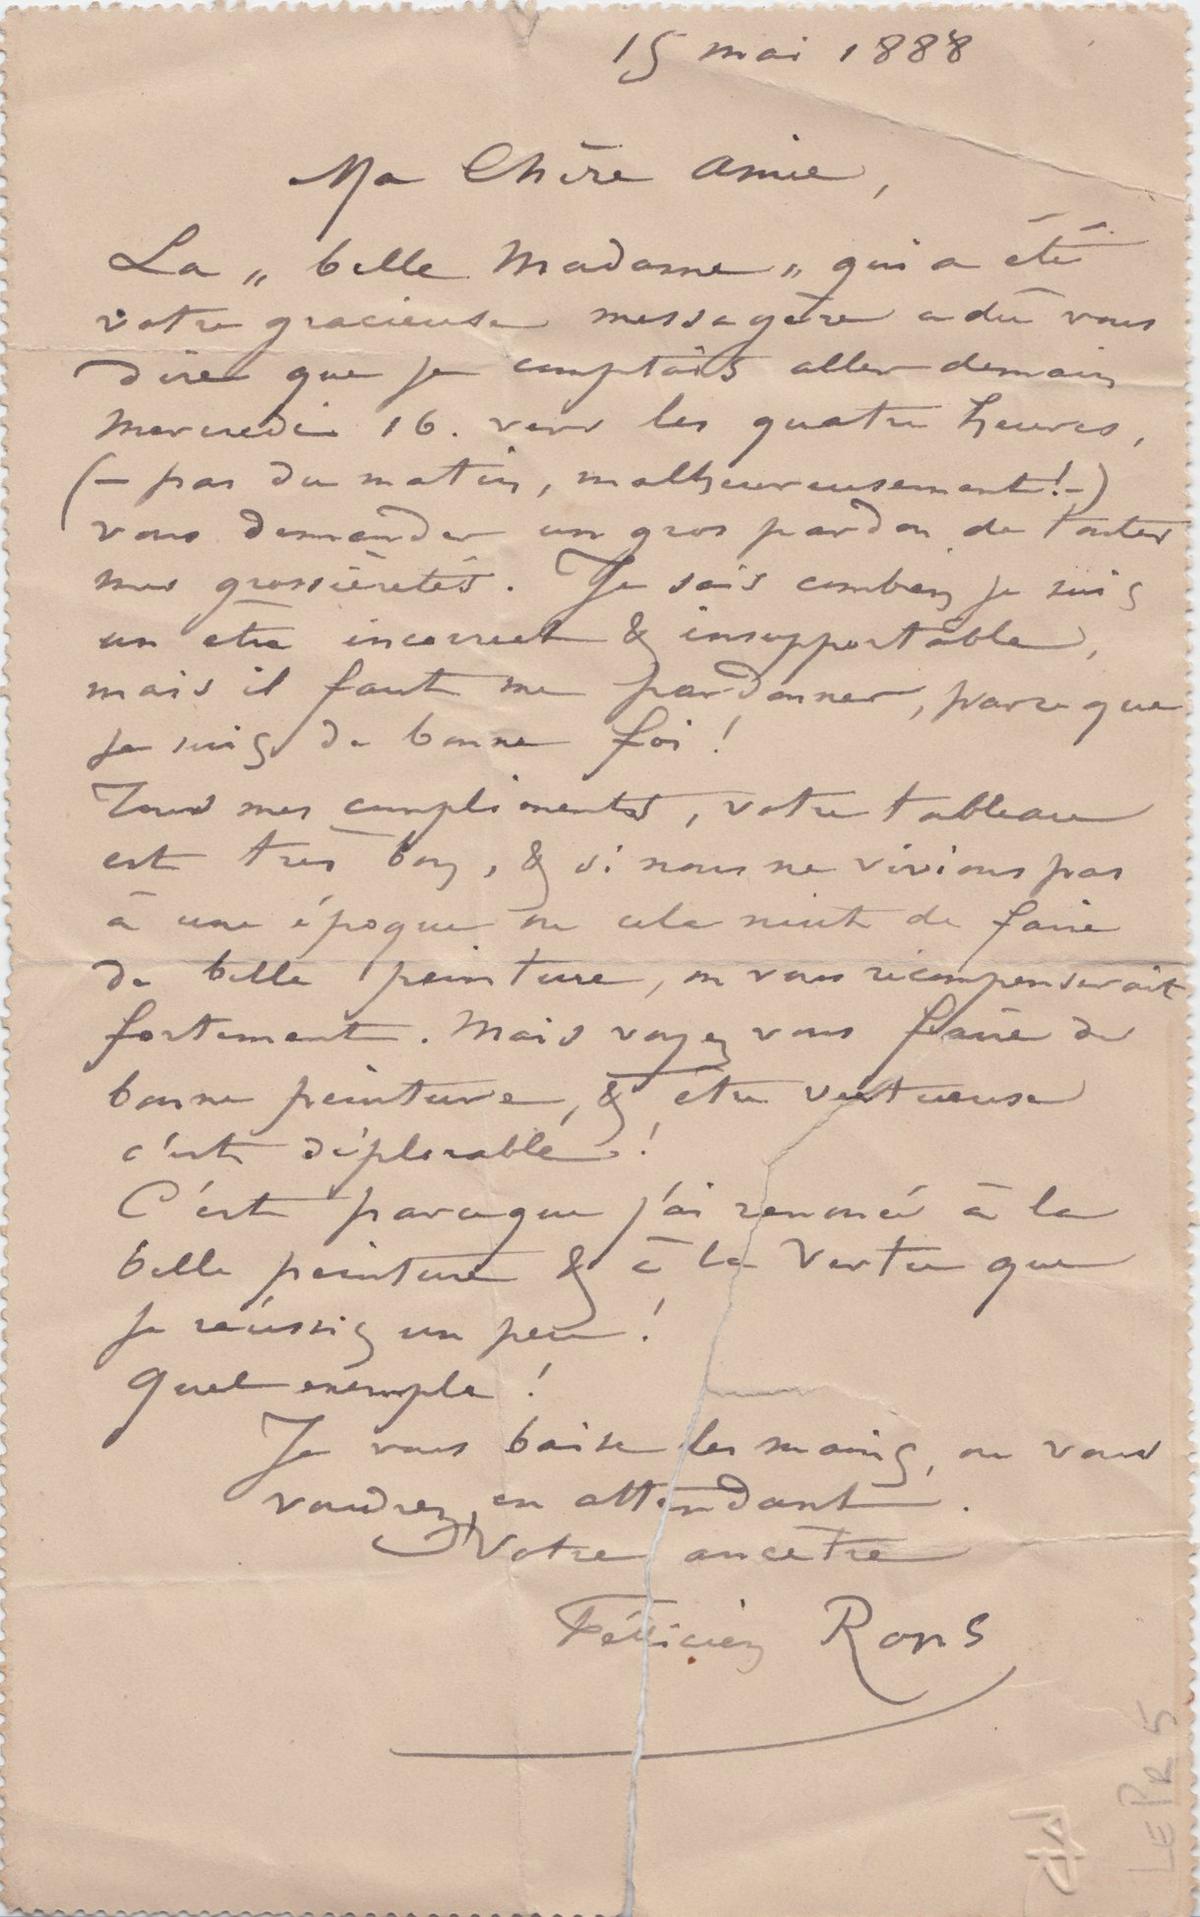 15 mai 1888
Ma Chère amie,
La „ belle Madame „ qui a été
votre gracieuse messagère a dû vous
dire que je comptais aller demain
mercredi 16. vers les quatre heures,
(– pas du matin, malheureusement! –)
vous demander un gros pardon de toutes
mes grossièretés. Je sais combien je suis
un être incorrect & insupportable,
mais il faut me pardonner, parce que
je suis de bonne foi !
Tous mes compliments, votre tableau
est très bon, & si nous ne vivions pas
à une époque où cela nuit de faire
de belle peinture, on vous récompenserait
fortement. Mais voyez vous faire de
bonne peinture, & être vertueuse
c'est déplorable !
C'est parceque j'ai renoncé à la
belle peinture & à la Vertu que
je réussis un peu !
Quel exemple !
Je vous baise les mains, ou vous
voudrez, en attendant.
Votre ancêtre
Félicien Rops
LEPR 5